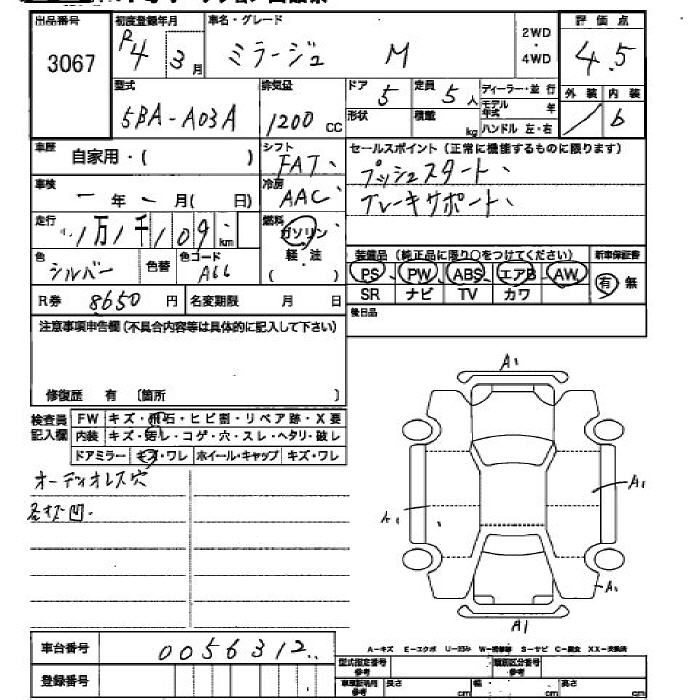 出品番号 3067
初度登録年月 R4 3月
車名・グレード ミラージュ M
2WD・4WD
評価点 4.5
外装 内装 b
型式 5BA-A03A
排気量 1200 CC
ドア 5 形状
定員 5人 積載 kg
ディーラー・並行
モデル年式 年
ハンドル 左・右
車歴 自家用・( )
シフト FAT
セールスポイント(正常に機能するものに限ります)
プッシュスタート、
ブレーキサポート、
車検 ー年ー月( 日)
冷房 AAC
走行 1万1千109km
燃料 ガソリン 軽・油 ( )
色 シルバー 色替 色コード A66
装備品(純正品に限り○をつけてください)
PS PW ABS エアB AW
SR ナビ TV カワ
新車保証書 有 無
R券 8650円 名変期限 月 日
後日品
注意事項申告欄(不具合内容等は具体的に記入して下さい)
修復歴 有 〔箇所 〕
検査員記入欄
FW キズ・飛石・ヒビ割・リペア跡・X要
内装 キズ・汚レ・コゲ・穴・スレ・ヘタリ・破レ
ドアミラー キズ・ワレ ホイール・キャップ キズ・ワレ
オーディオレス穴
A1
A1
A1
A1
A1
車台番号 0056312
登録番号
A-キズ E-エクボ U-凹ミ W-補修跡 S-サビ C-腐食 XX-交換済
型式指定番号 参考
類別区分番号 参考
車庫証明用 参考 長さ cm 幅 cm 高さ cm